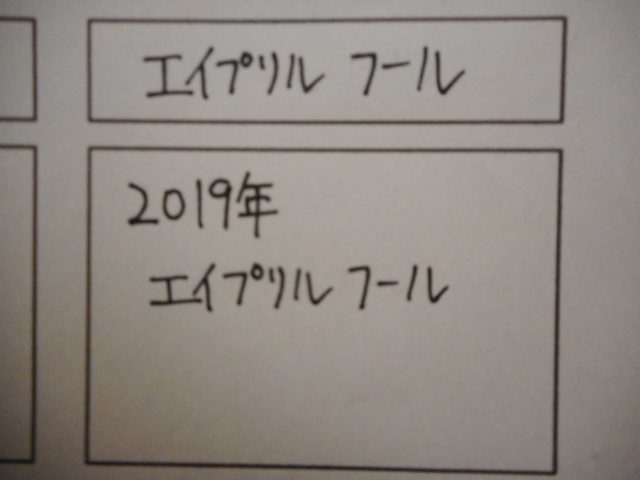 エイプリル フール
2019年
エイプリル フール